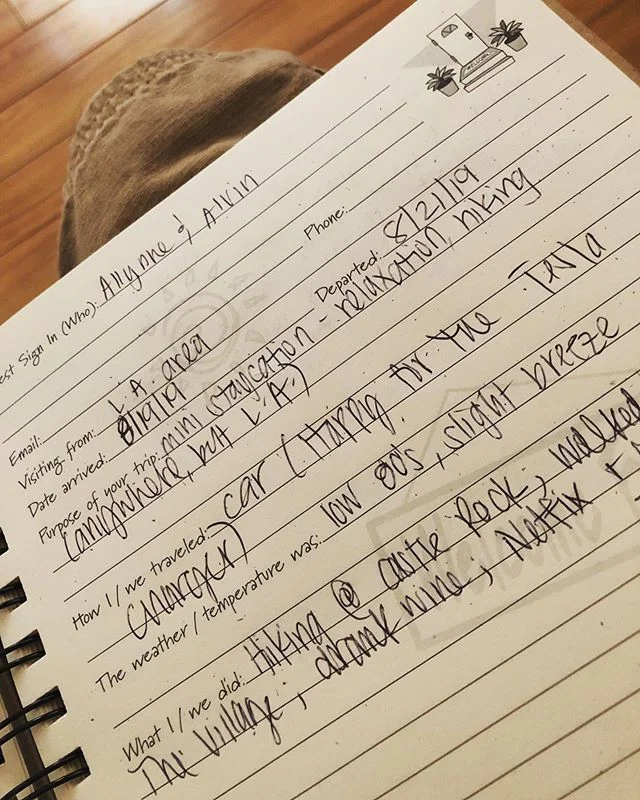 WELCOME
est Sign In (Who): Allynne & Alvin
Phone:
Email:
Visiting from: L.A. area
Date arrived: 8/19/19 Departed: 8/21/19
Purpose of your trip: mini staycation - relaxation, hiking
(anywhere, but L.A.)
How I/we traveled: car (Happy for the Tesla
charger)
The weather/temperature was: low 80's, slight breeze
Welcome
What I/we did: Hiking @ Castle Rock, walked
The Village, drank wine, Netflix +